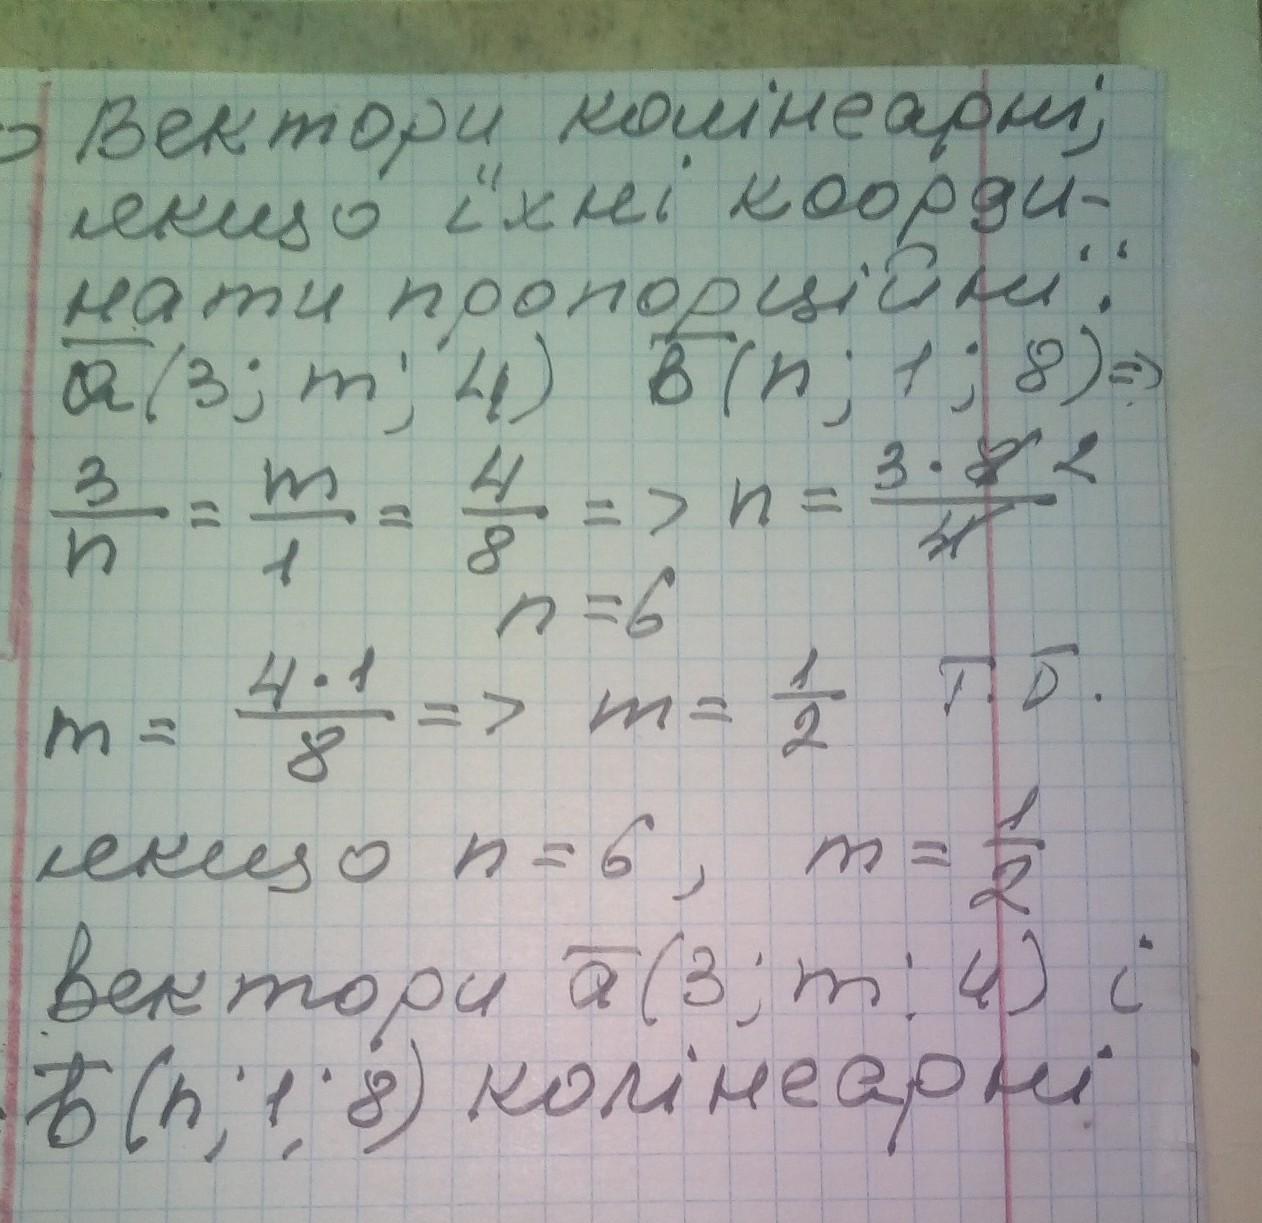 Вектори колінеарні,
якщо їхні коорди-
нати пропорційні:
a̅(3; m; 4) b̅(n; 1; 8)=>
3/n = m/1 = 4/8 => n = 3·8 2/4
n = 6
m = 4·1/8 => m = 1/2 Т. Б.
якщо n = 6, m = 1/2
вектори a̅(3; m; 4) і
b̅(n; 1; 8) колінеарні